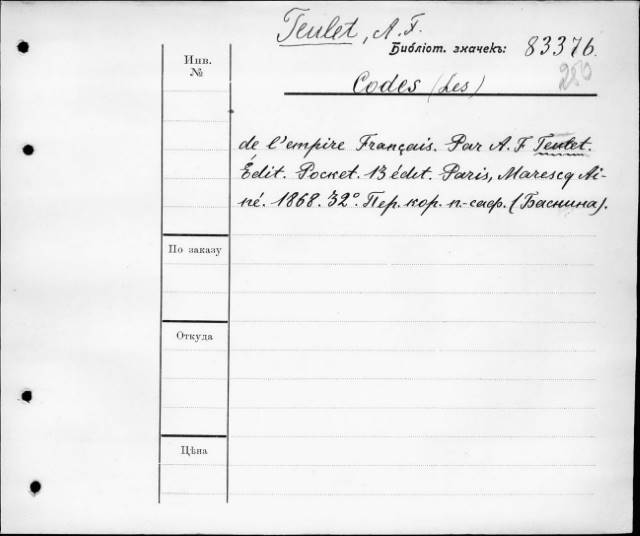 Teulet, A. F.
Библіот. значекъ: 83376.
250
Инв.
№
Codes (Les)
de l'empire Français. Par A. F Teulet.
Édit. Pocket. 13 édit. Paris, Marescq Ai-
né. 1868. 32°. Пер. кор. п-саф. (Баснина).
По заказу
Откуда
Цѣна